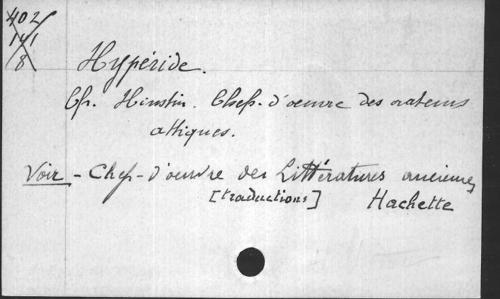 402
141
8
Hypéride.
Cf. Hinstin. Chefs-d'oeuvre des orateurs
attiques.
Voir - Chefs-d'oeuvre des Littératures anciennes
[traductions] Hachette